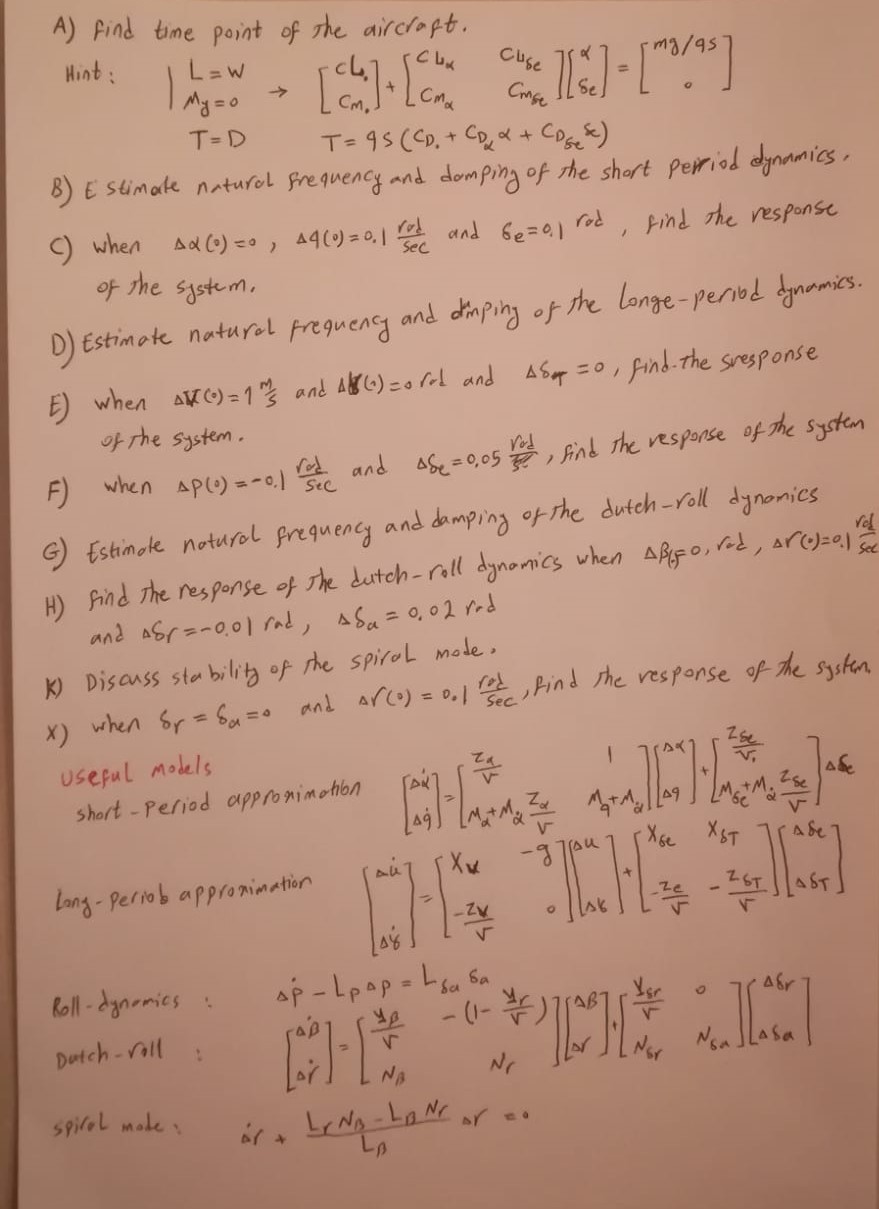 A) find time point of the aircraft.
Hint: | L = W → [CL₀ Cm₀] + [CLα CLδe Cmα Cmδe] [α δe] = [mg/qs 0]
My = 0
T = D T = qs (CD₀ + CDα α + CDδe δe)
B) Estimate natural frequency and damping of the short perriod dynamics.
C) when Δα(0) = 0, Δq(0) = 0.1 rad/sec and δe = 0.1 rad, find the response
of the system.
D) Estimate natural frequency and dmping of the Longe-period dynamics.
E) when ΔV(0) = 1 m/s and Δγ(0) = 0 rad and ΔδT = 0, find the sresponse
of the system.
F) when ΔP(0) = -0.1 rad/sec and Δδe = 0,05 rad, find the response of the system
G) Estimate natural frequency and damping of the dutch-roll dynamics
H) find the response of the dutch-roll dynamics when Δβ(0) = 0, rad, Δr(0) = 0.1 rad/sec
and Δδr = -0.01 rad, Δδa = 0.02 rad
K) Discuss stability of the spiral mode.
X) when δr = δa = 0 and Δr(0) = 0.1 rad/sec, find the response of the system
Useful models
short-period approximation [Δα̇ Δq̇] = [Zα/V 1 Mα+Mα̇ Zα/V Mq+Mα̇] [Δα Δq] + [Zδe/V Mδe+Mα̇ Zδe/V] Δδe
Long-period approximation [Δu̇ Δγ̇] = [XV -g -ZV/V 0] [Δu Δγ] + [Xδe XδT -Ze/V -ZδT/V] [Δδe ΔδT]
Roll-dynamics : Δṗ - Lp Δp = Lδa δa
Dutch-roll : [Δβ̇ Δṙ] = [Yβ/V -(1-Yr/V) Nβ Nr] [Δβ Δr] + [Yδr/V 0 Nδr Nδa] [Δδr Δδa]
spiral mode : Δṙ + (Lr Nβ - Lβ Nr)/Lβ Δr = 0